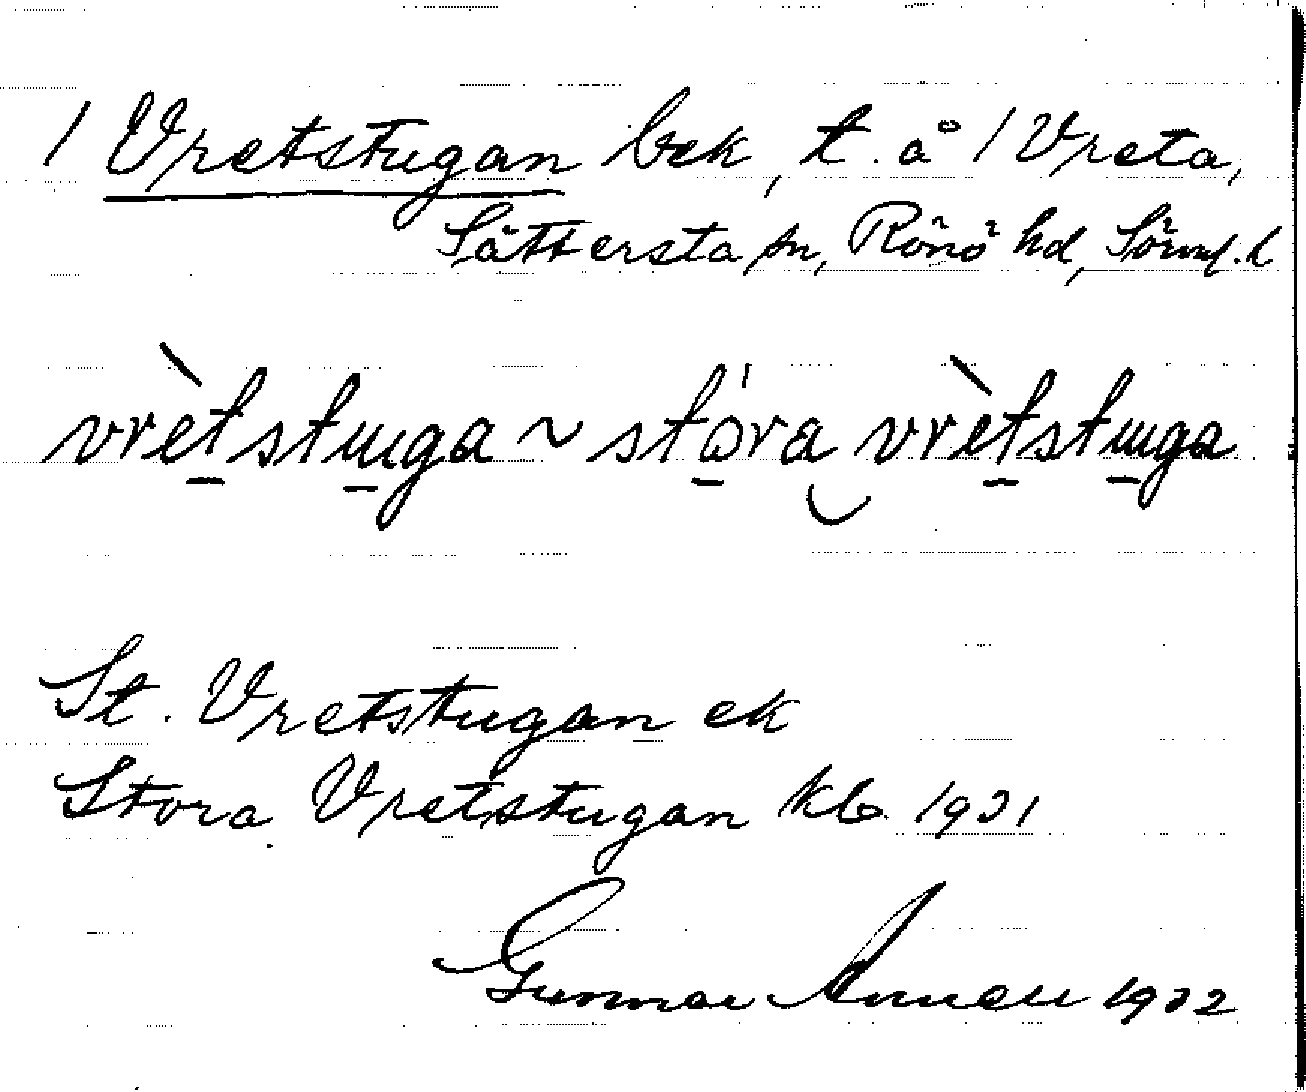 / Vretstugan bek, t. å / Vreta,
Sättersta sn, Rönö hd, Sörml. l
vrètstuga ~ stóra vrètstuga
St. Vretstugan ek
Stora Vretstugan kb 1931
Gunnar 1932